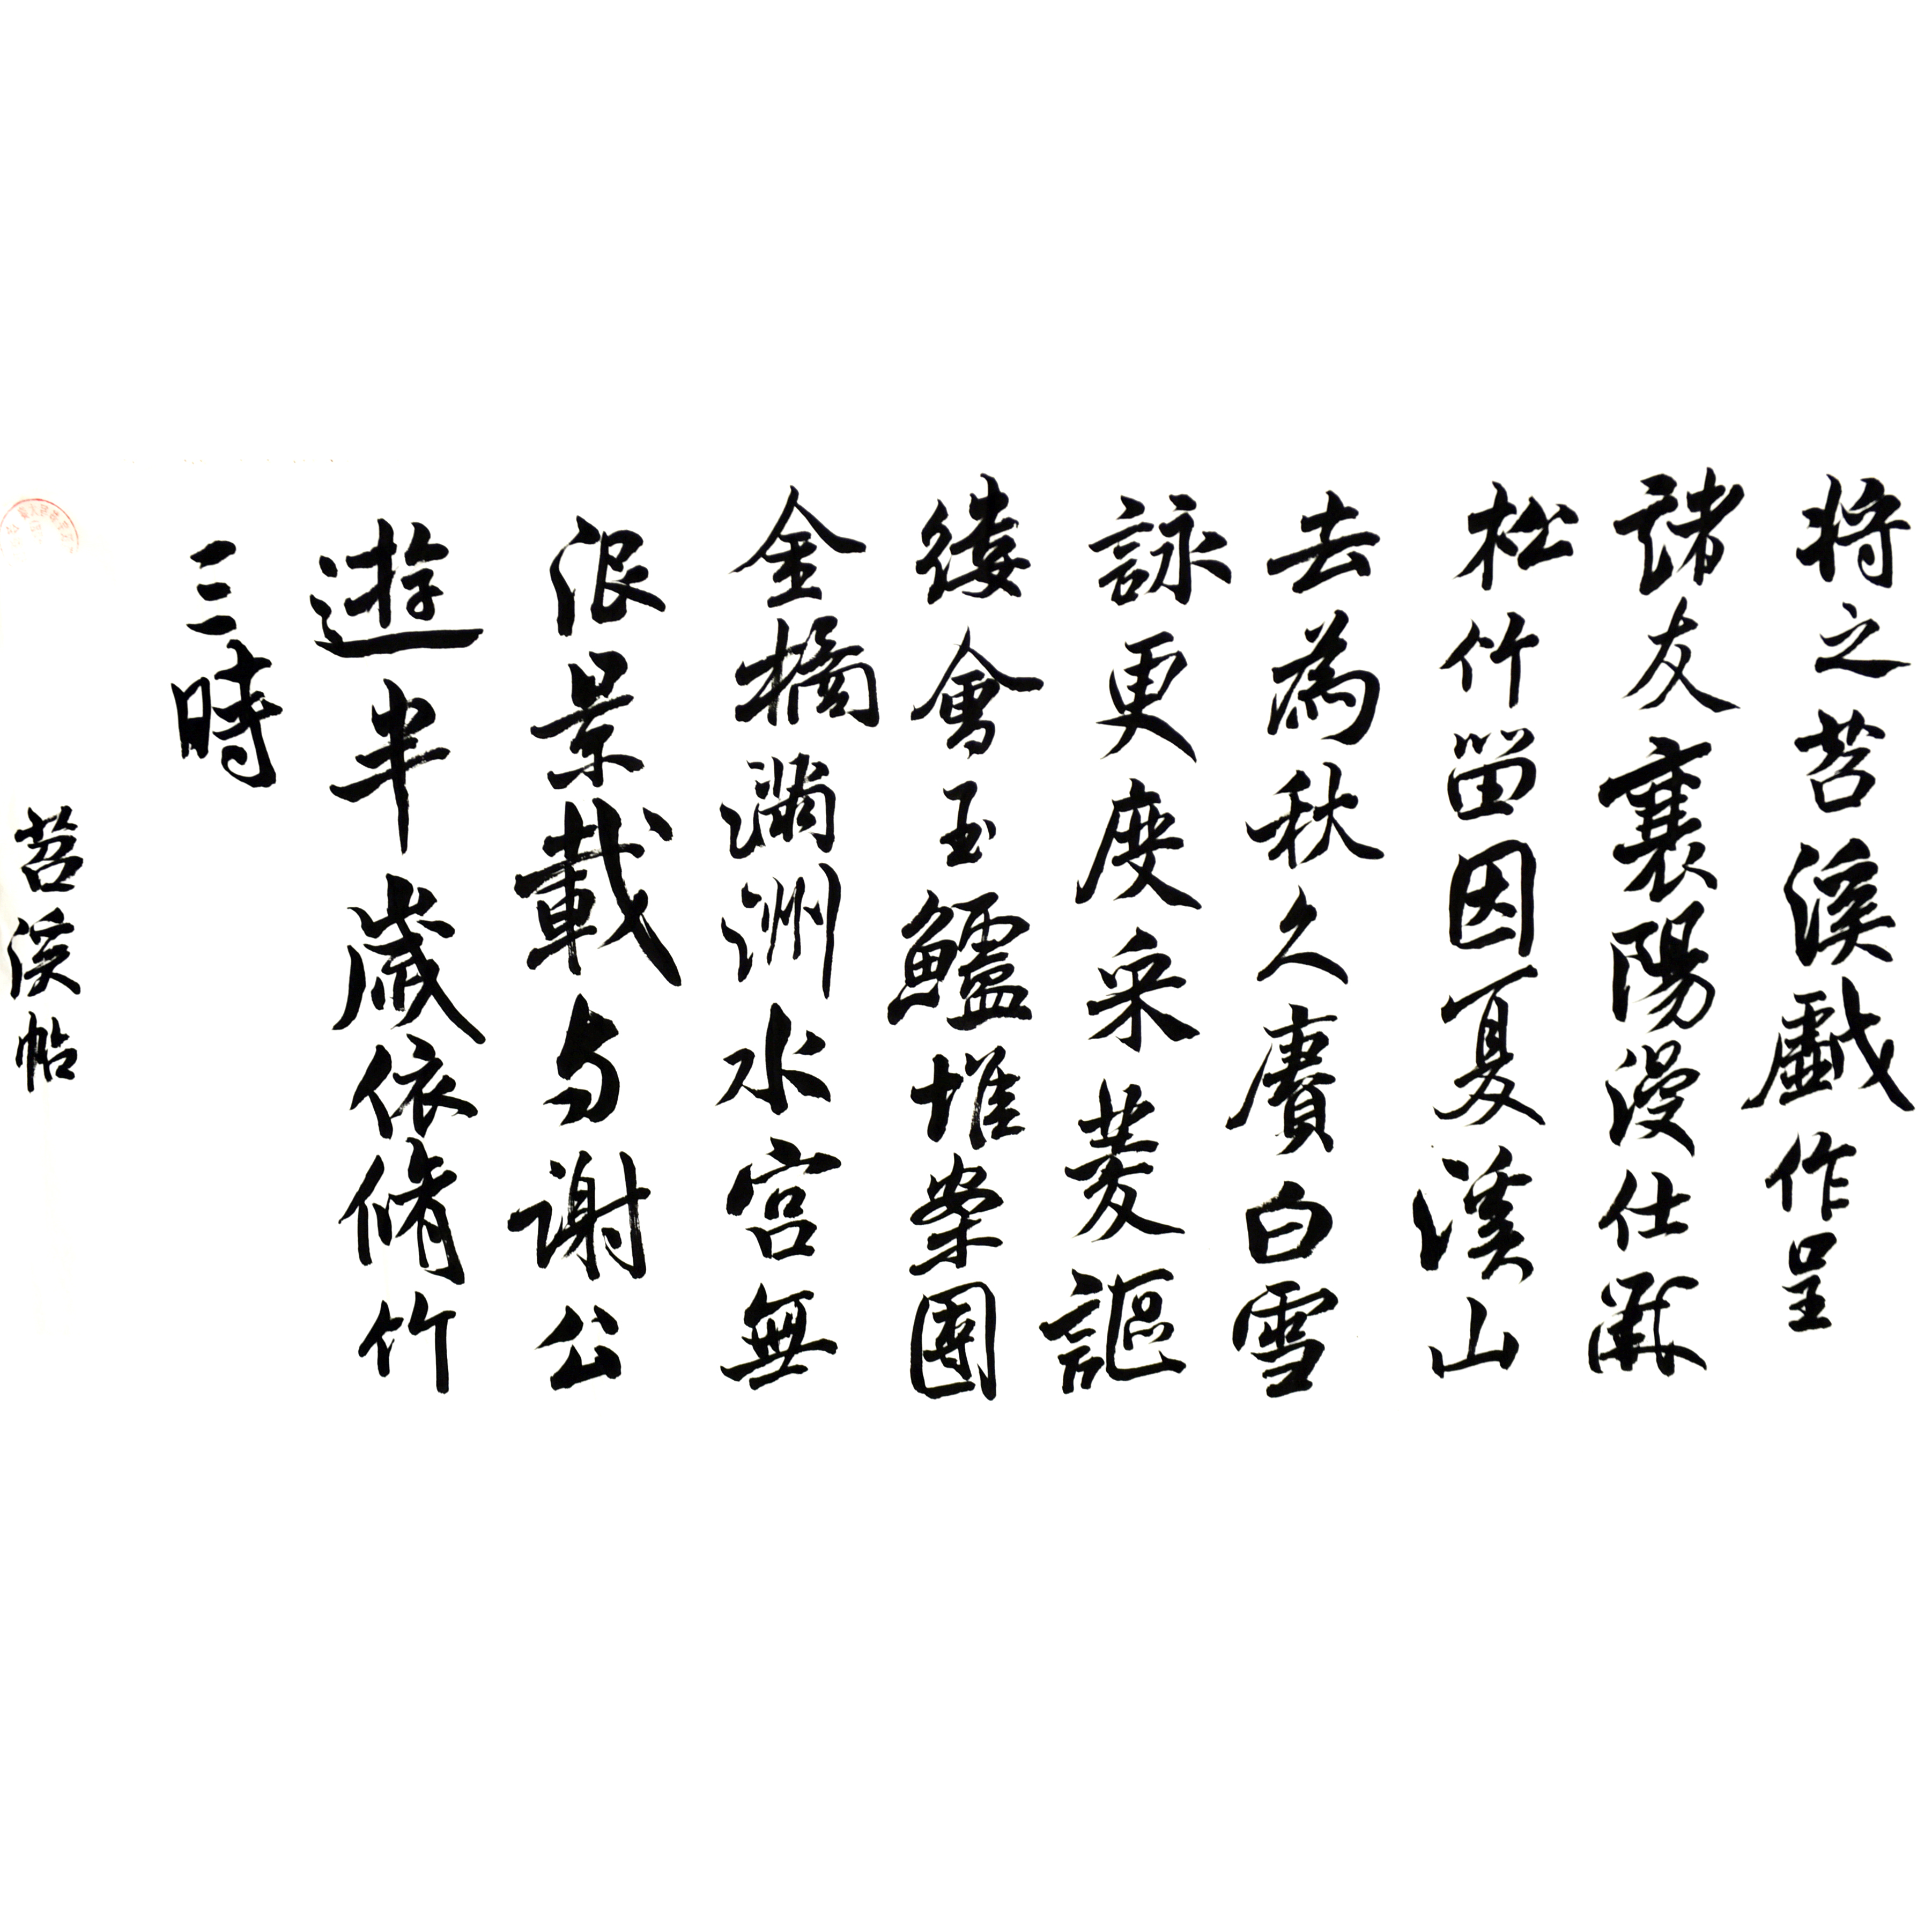 將之苕溪戲作呈
諸友襄陽漫仕黻
松竹留因夏溪山
去為秋久賡白雪
詠更度采菱謳
縷會玉鱸堆案團
金橘滿洲水宮無
限景載與謝公
遊半歲依脩竹
三時
苕溪帖